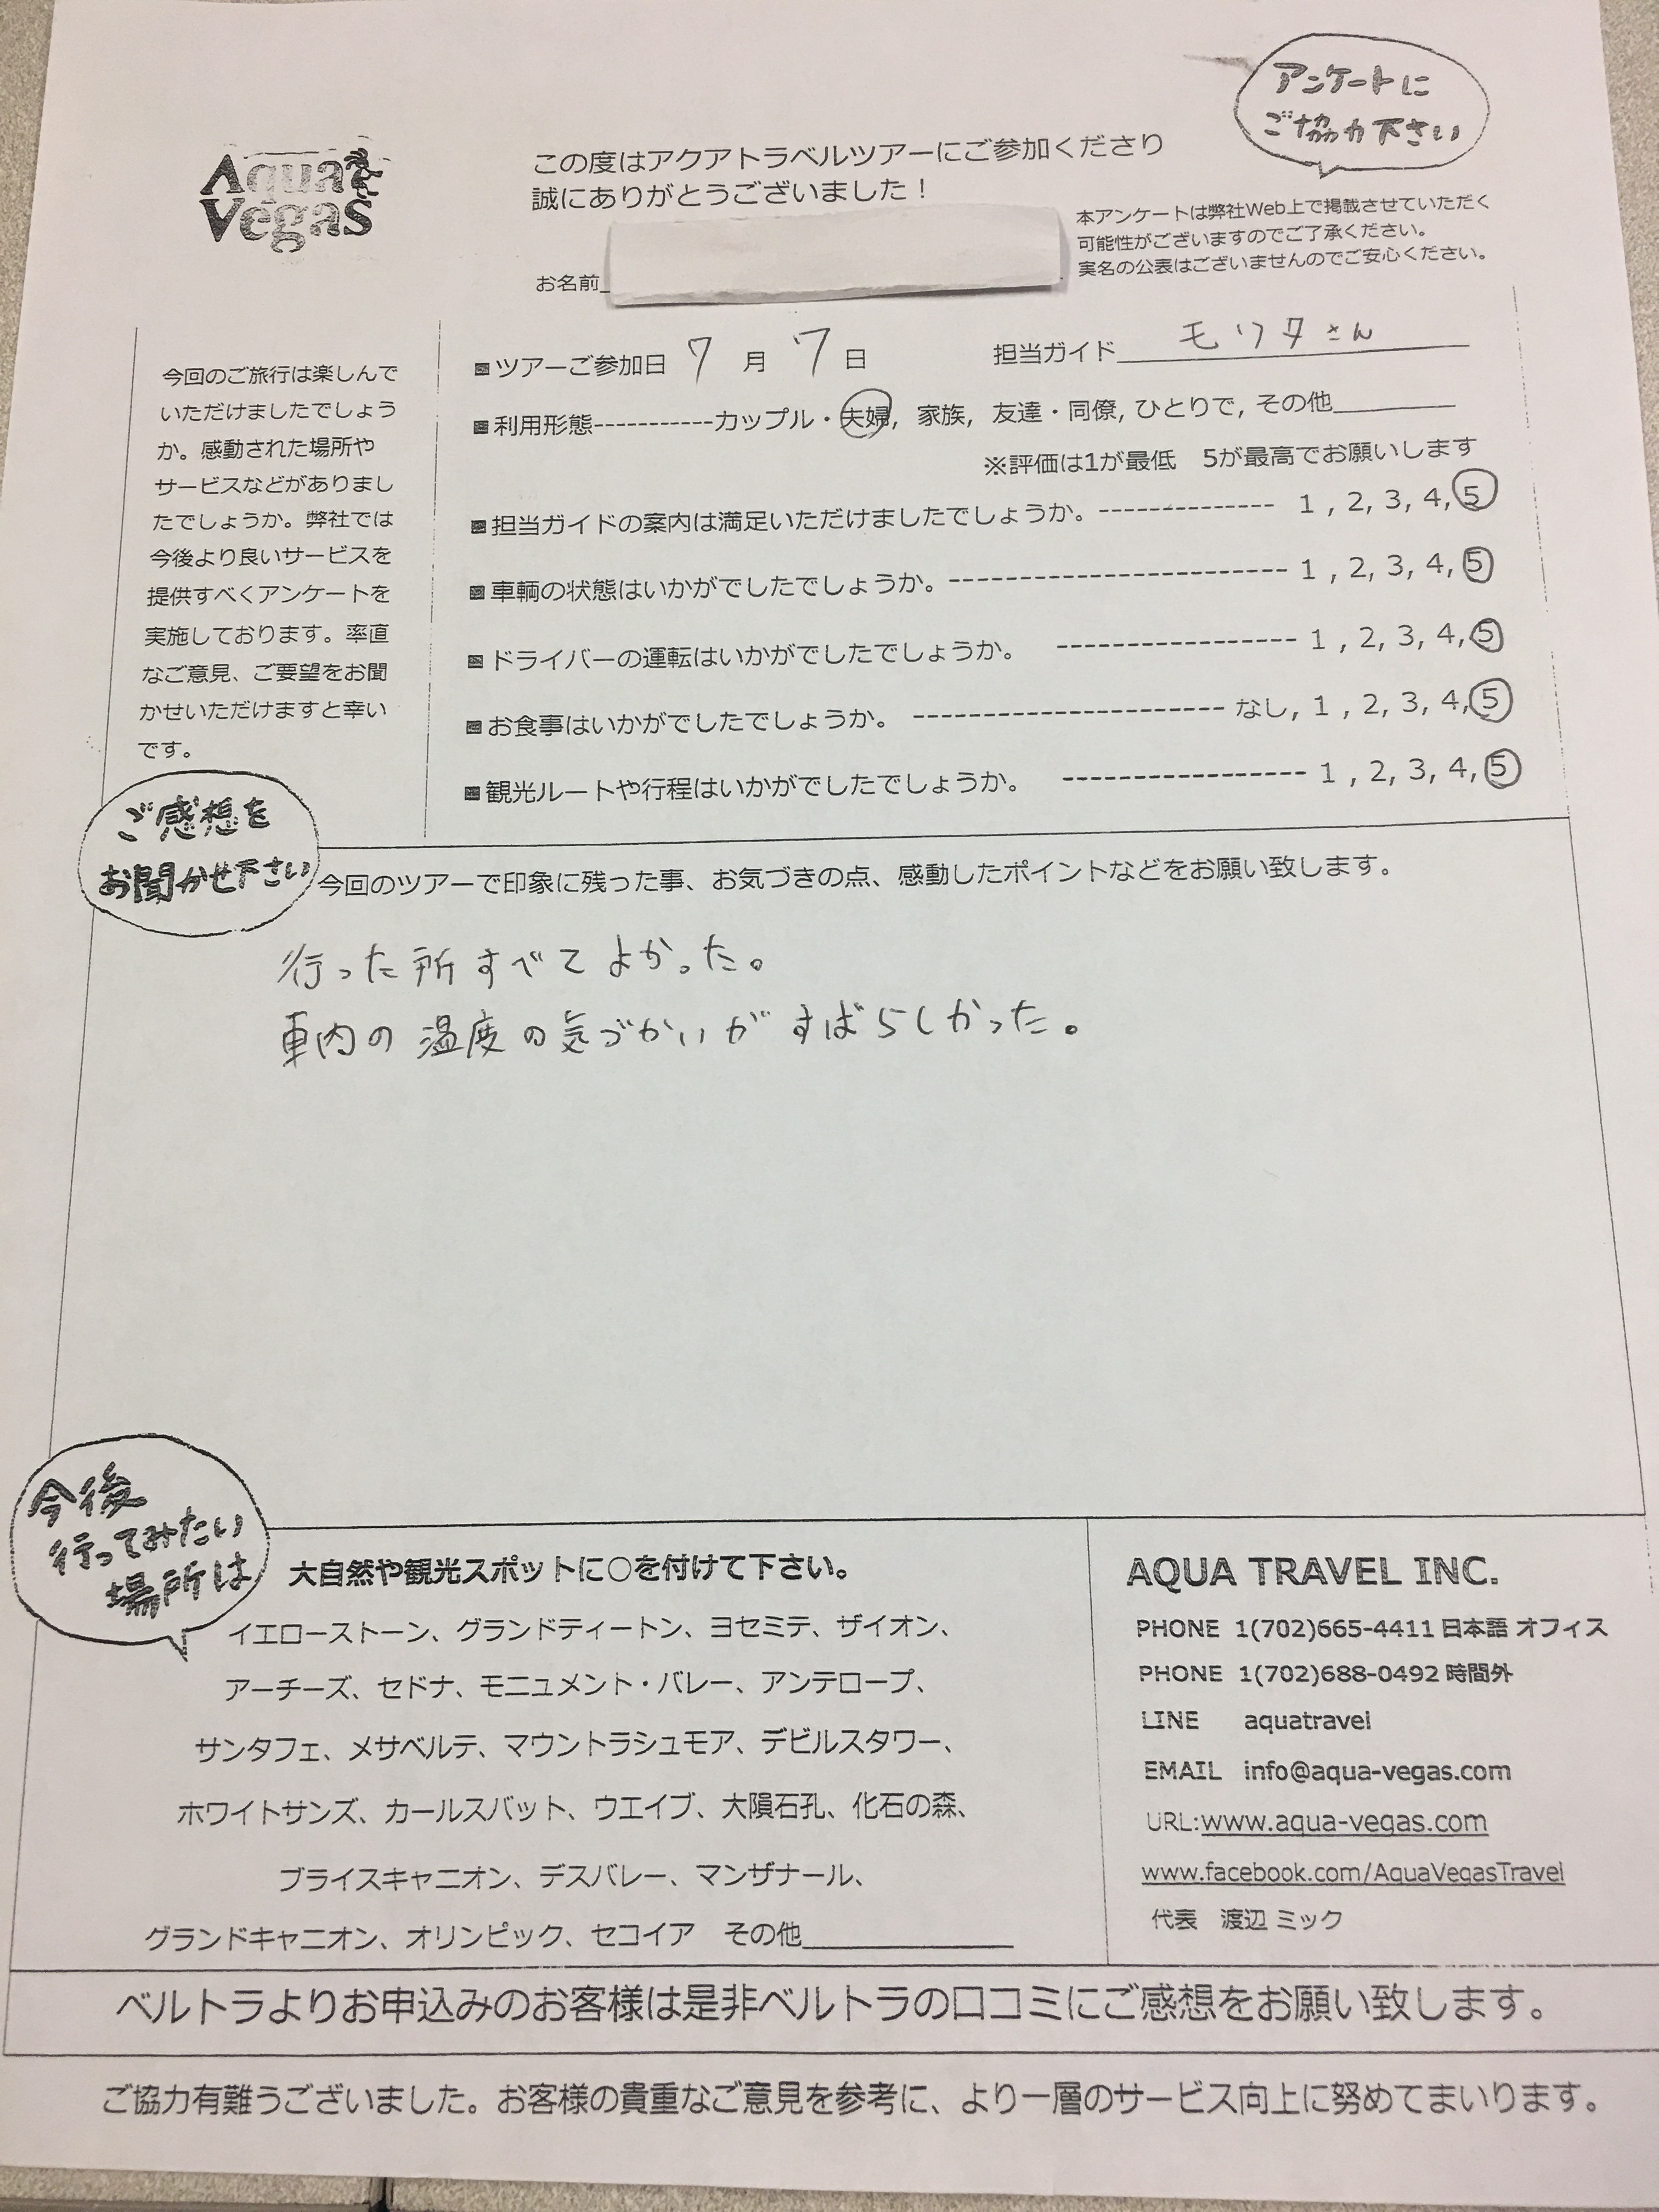 アンケートに
ご協力下さい
Aqua
Vegas
この度はアクアトラベルツアーにご参加くださり
誠にありがとうございました！
本アンケートは弊社Web上で掲載させていただく
可能性がございますのでご了承ください。
実名の公表はございませんのでご安心ください。
お名前
今回のご旅行は楽しんで
いただけましたでしょう
か。感動された場所や
サービスなどがありまし
たでしょうか。弊社では
今後より良いサービスを
提供すべくアンケートを
実施しております。率直
なご意見、ご要望をお聞
かせいただけますと幸い
です。
■ツアーご参加日 7 月 7 日 担当ガイド モリタさん
■利用形態-----------カップル・夫婦, 家族, 友達・同僚, ひとりで, その他
※評価は1が最低 5が最高でお願いします
■担当ガイドの案内は満足いただけましたでしょうか。-------------- 1 , 2, 3, 4, 5
■車輌の状態はいかがでしたでしょうか。------------------------ 1 , 2, 3, 4, 5
■ドライバーの運転はいかがでしたでしょうか。 ----------------- 1 , 2, 3, 4, 5
■お食事はいかがでしたでしょうか。 ---------------------- なし, 1 , 2, 3, 4, 5
■観光ルートや行程はいかがでしたでしょうか。 ----------------- 1 , 2, 3, 4, 5
ご感想を
お聞かせ下さい
今回のツアーで印象に残った事、お気づきの点、感動したポイントなどをお願い致します。
行った所すべてよかった。
車内の温度の気づかいがすばらしかった。
今後
行ってみたい
場所は
大自然や観光スポットに○を付けて下さい。
イエローストーン、グランドティートン、ヨセミテ、ザイオン、
アーチーズ、セドナ、モニュメント・バレー、アンテロープ、
サンタフェ、メサベルテ、マウントラシュモア、デビルスタワー、
ホワイトサンズ、カールスバット、ウエイブ、大隕石孔、化石の森、
ブライスキャニオン、デスバレー、マンザナール、
グランドキャニオン、オリンピック、セコイア その他
AQUA TRAVEL INC.
PHONE 1(702)665-4411 日本語 オフィス
PHONE 1(702)688-0492 時間外
LINE aquatravel
EMAIL info@aqua-vegas.com
URL:www.aqua-vegas.com
www.facebook.com/AquaVegasTravel
代表 渡辺 ミック
ベルトラよりお申込みのお客様は是非ベルトラの口コミにご感想をお願い致します。
ご協力有難うございました。お客様の貴重なご意見を参考に、より一層のサービス向上に努めてまいります。